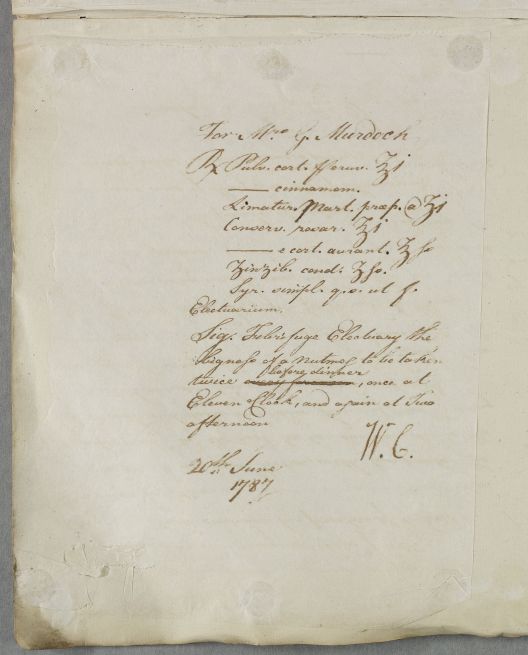 For Mrs G. Murdoch
℞ Pulv. cort. Peruv. ℥j
—— cinnamom.
Limatur. Mart. præp. a ʒj
Conserv. rosar. ℥j
—— e cort. aurant. ℥ſs
Zinzib. condit. ℥ſs.
Syr. simpl. q.s. ut f.
Electuarium.
Sig. Febrifuge Electuary the
bigness of a nutmeg to be taken
before dinner
twice every forenoon, once at
Eleven o'Clock, and again at Two
afternoon
W. C.
20th June
1787